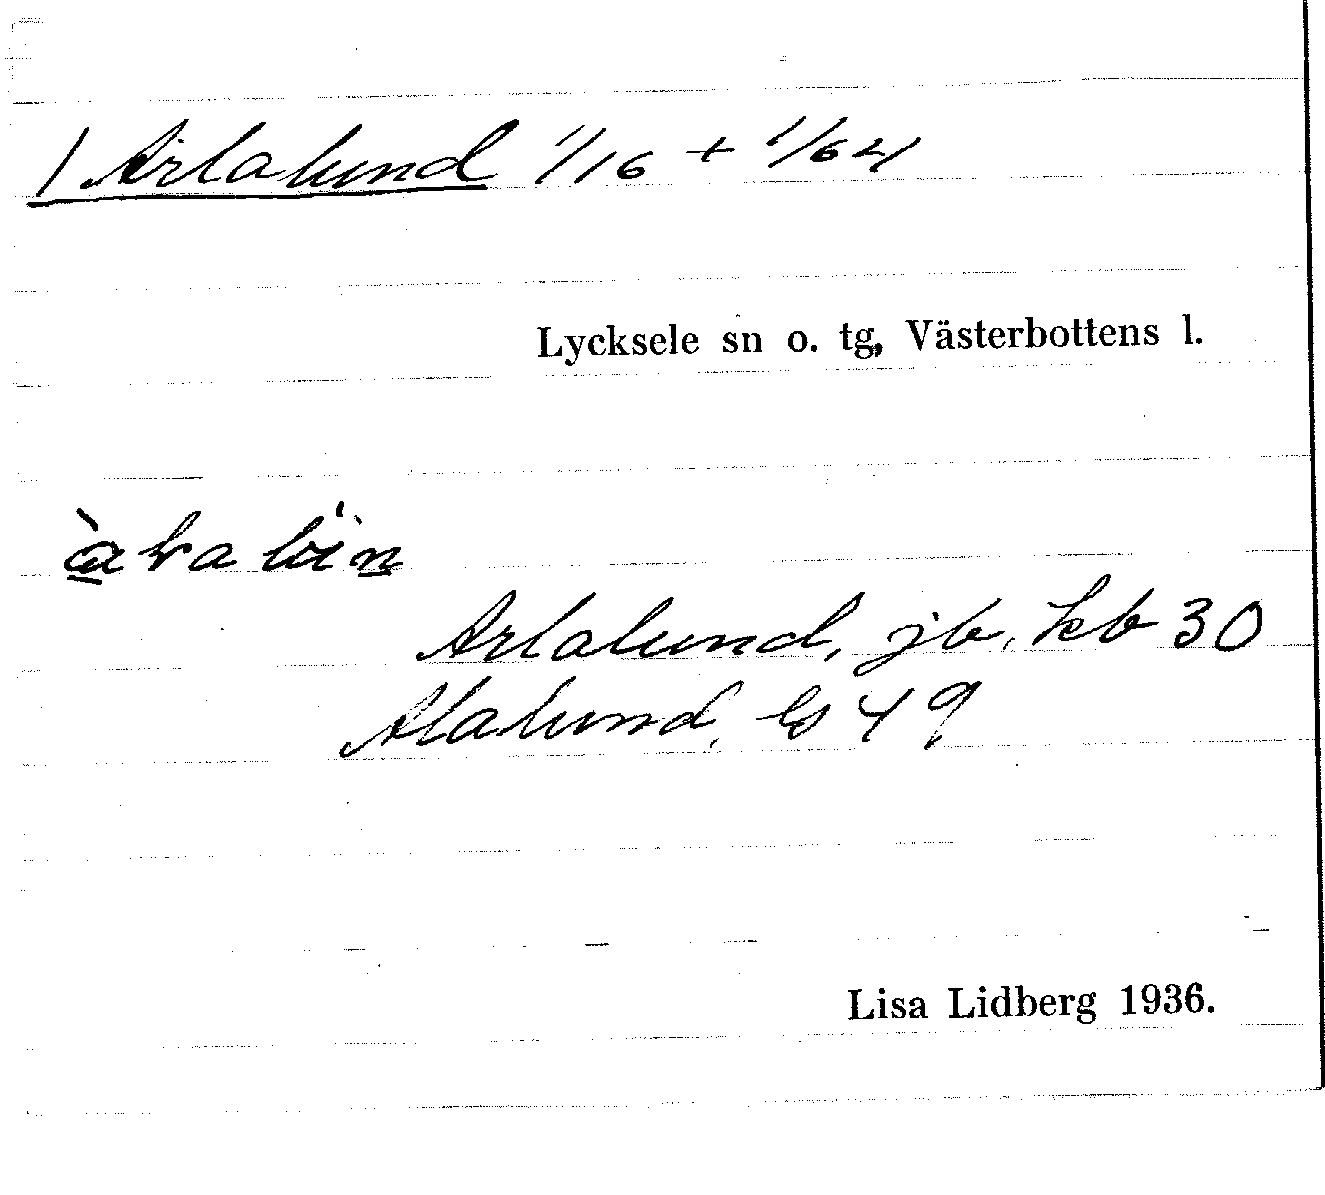 1 Arlalund 1/16 + 1/64
Lycksele sn o. tg, Västerbottens l.
Arlalund, jb, kb 30
Alalund, Gs 49
Lisa Lidberg 1936.